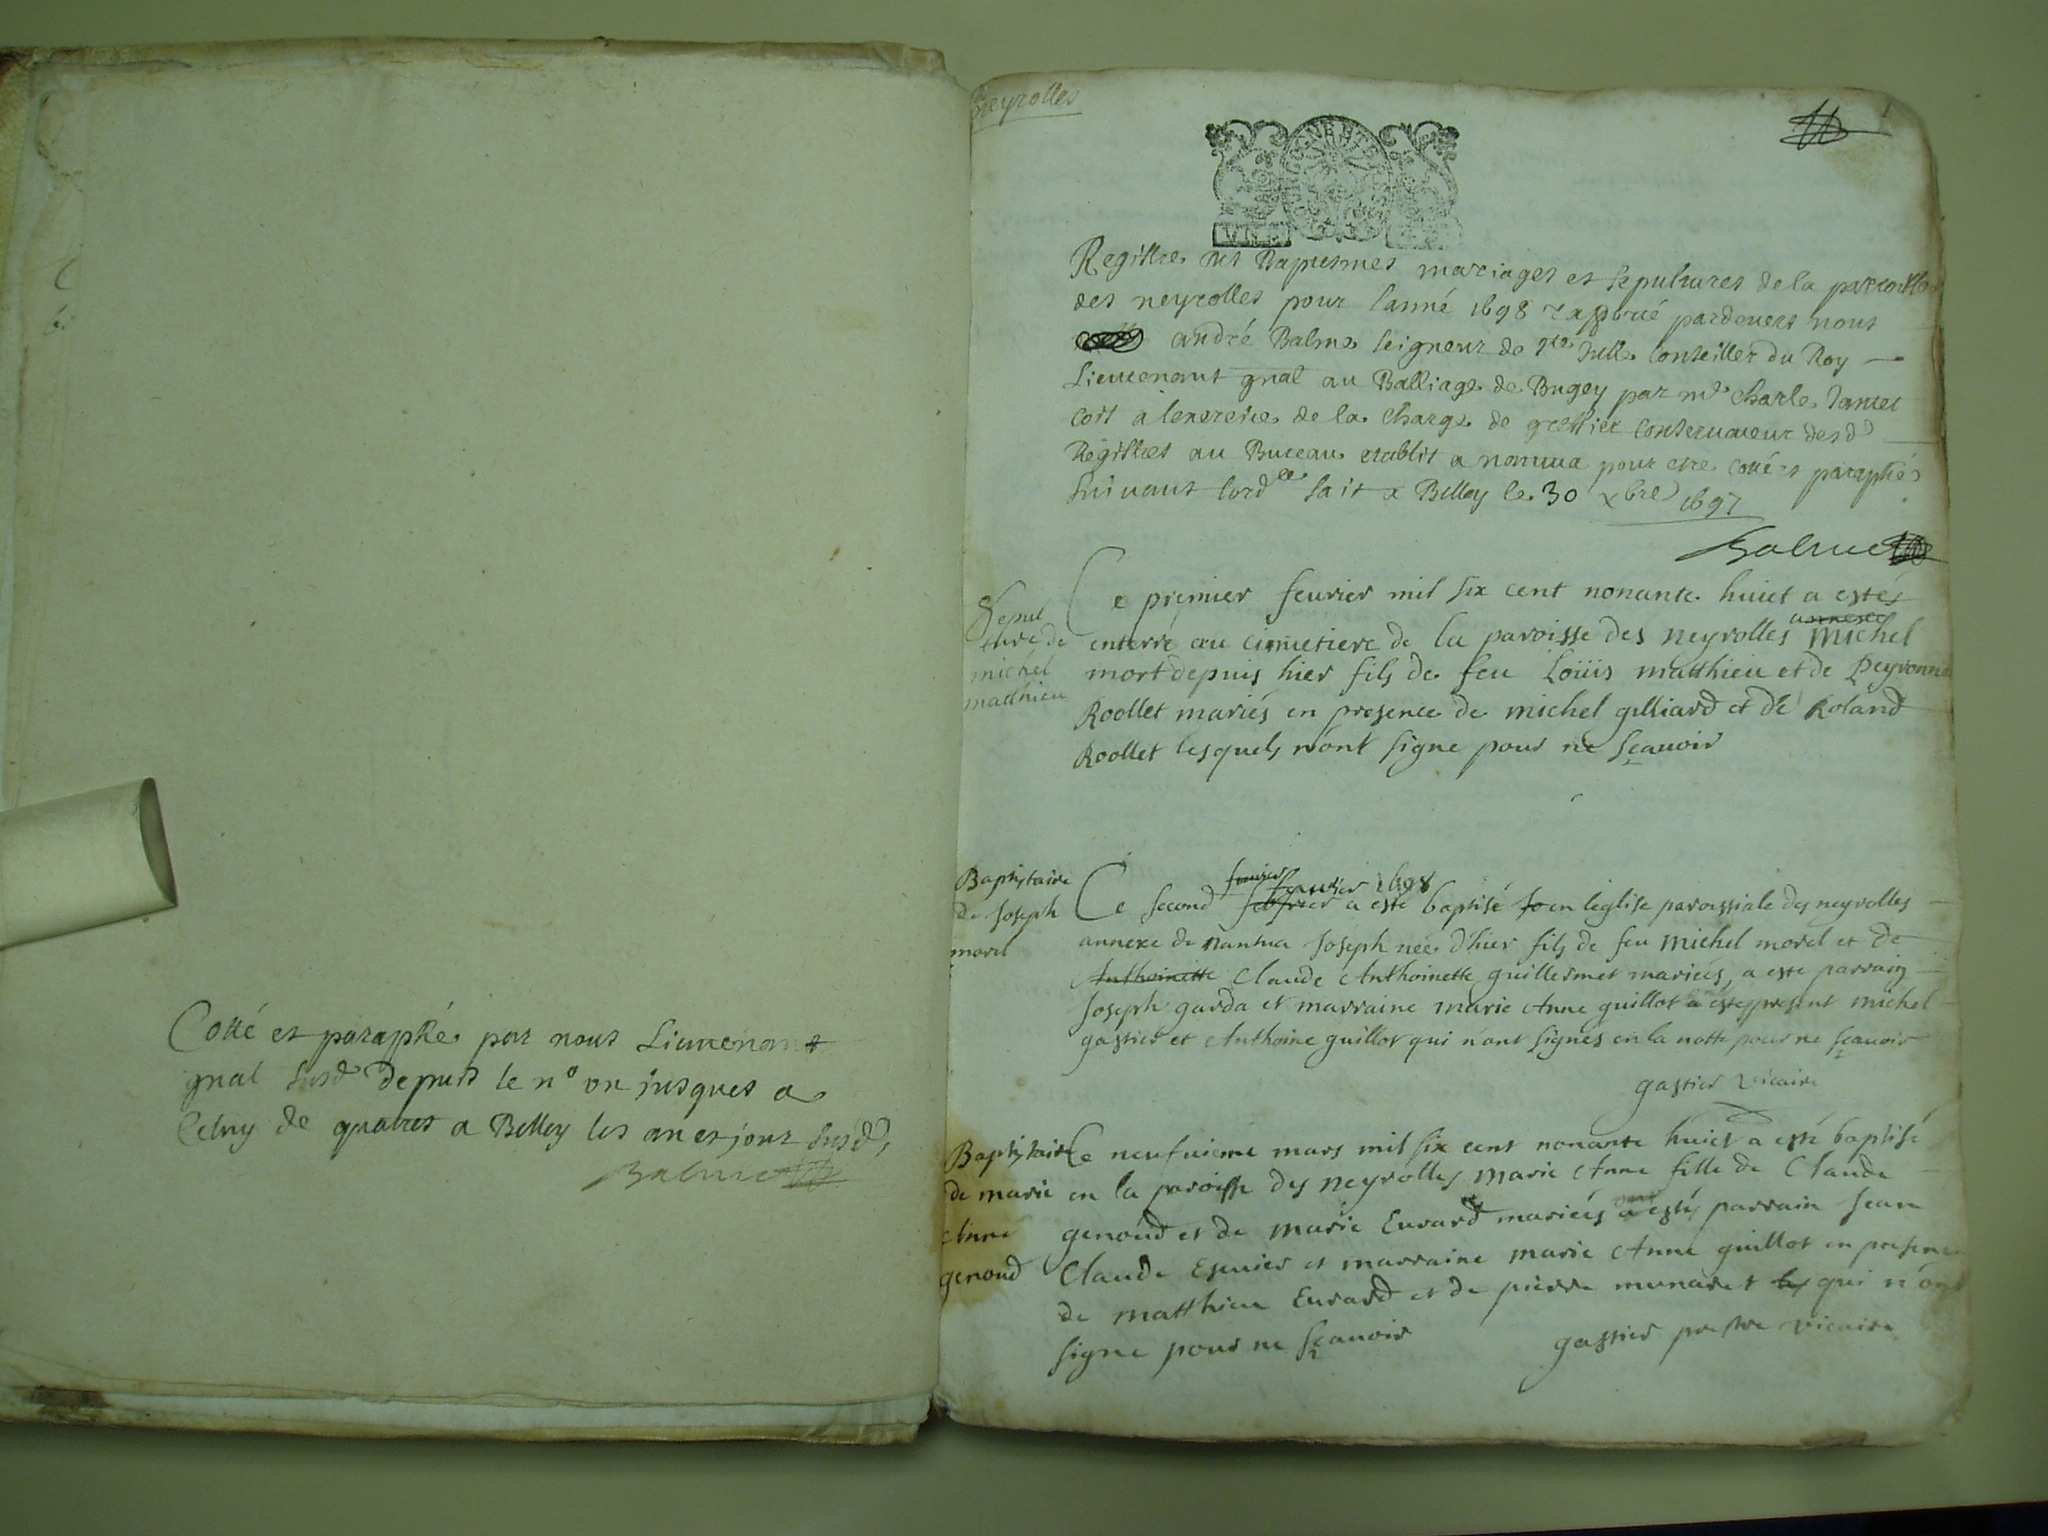 Cotté et paraphé par nous Lieutenant
gnal susd depuis le n° un jusques a
celuy de quatres a Belley les an et jour susd
Balme
Neyrolles
Registre des Baptesmes mariages et sepultures de la parroisse
des neyrolles pour lanné 1698 pardevers nous
andré Balme seigneur de Conseiller du Roy
Lieutenant gnal au Balliage de Bugey par mr Charle
a lexercice de la charge de greffier conservateur desd
Registres au Bureau etablit a nantua pour etre cotté et paraphé
suivant lord fait a Belley le 30 xbre 1697
Balme
Sepul
ture de
michel
matthieu
Ce premier feurier mil six cent nonante huict a estés
enterré au cimetiere de la paroisse des neyrolles annexe michel
mort depuis hier fils de feu Loüis matthieu et de Peyronne
Roollet mariés en presence de michel gilliard et de Roland
Roollet lesquels n'ont signe pour ne sçauoir
Baptistaire
de Joseph
morel
feurier feurier 1698
Ce second a esté baptisé en leglise paroissiale des neyrolles
annexe de nantua Joseph née d'hier fils de feu michel morel et de
Anthoinette Claude Anthoinette guillermet mariées, a esté parrain
Joseph garda et marraine marie Anne guillot a esté present michel
gastier et Anthoine guillot qui n'ont signés en la notte pour ne sçauoir
gastier vicaire
Baptistaire
de marie
Anne
genoud
Ce neufuieme mars mil six cent nonante huict a esté baptisé
en la paroisse des neyrolles marie Anne fille de Claude
genoud et de marie Eurard mariées a estés parrain Jean
Claude Esuier et marraine marie Anne guillot en presence
de matthieu Eurard et de pierre munaret les qui n'ont
signe pour ne sçauoir
gastier prestre vicaire